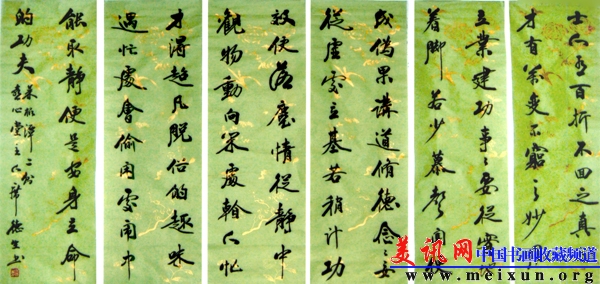 士人有百折不回之真
才有萬變不窮之妙用
立業建功事々要從實地
着脚若少慕聲聞便
成偽果講道修德念々要
從虛處立基若稍計功
效便落塵情從靜中
觀物動向閑處看人忙
才得超凡脫俗的趣味
遇忙處會偷閑處鬧中
能取靜便是安身立命
的功夫
菜根譚二則
心堂主人
德生书
美讯网
中国书画收藏频道
www.meixun.org